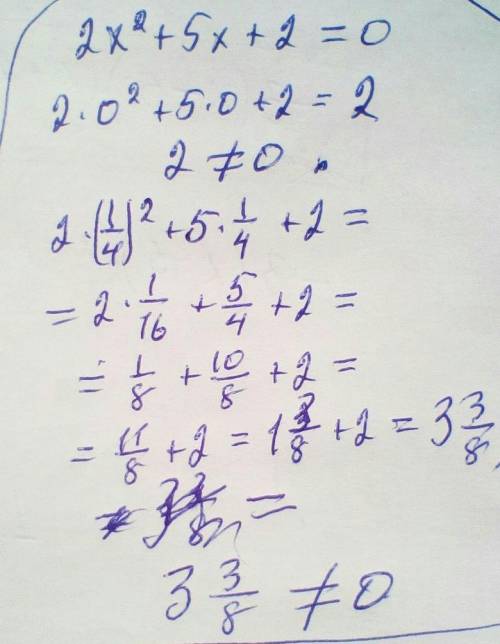 2x² + 5x + 2 = 0
2·0² + 5·0 + 2 = 2
2 ≠ 0.
2·(1/4)² + 5·1/4 + 2 =
= 2·1/16 + 5/4 + 2 =
= 1/8 + 10/8 + 2 =
= 11/8 + 2 = 1 3/8 + 2 = 3 3/8
=
3 3/8 ≠ 0